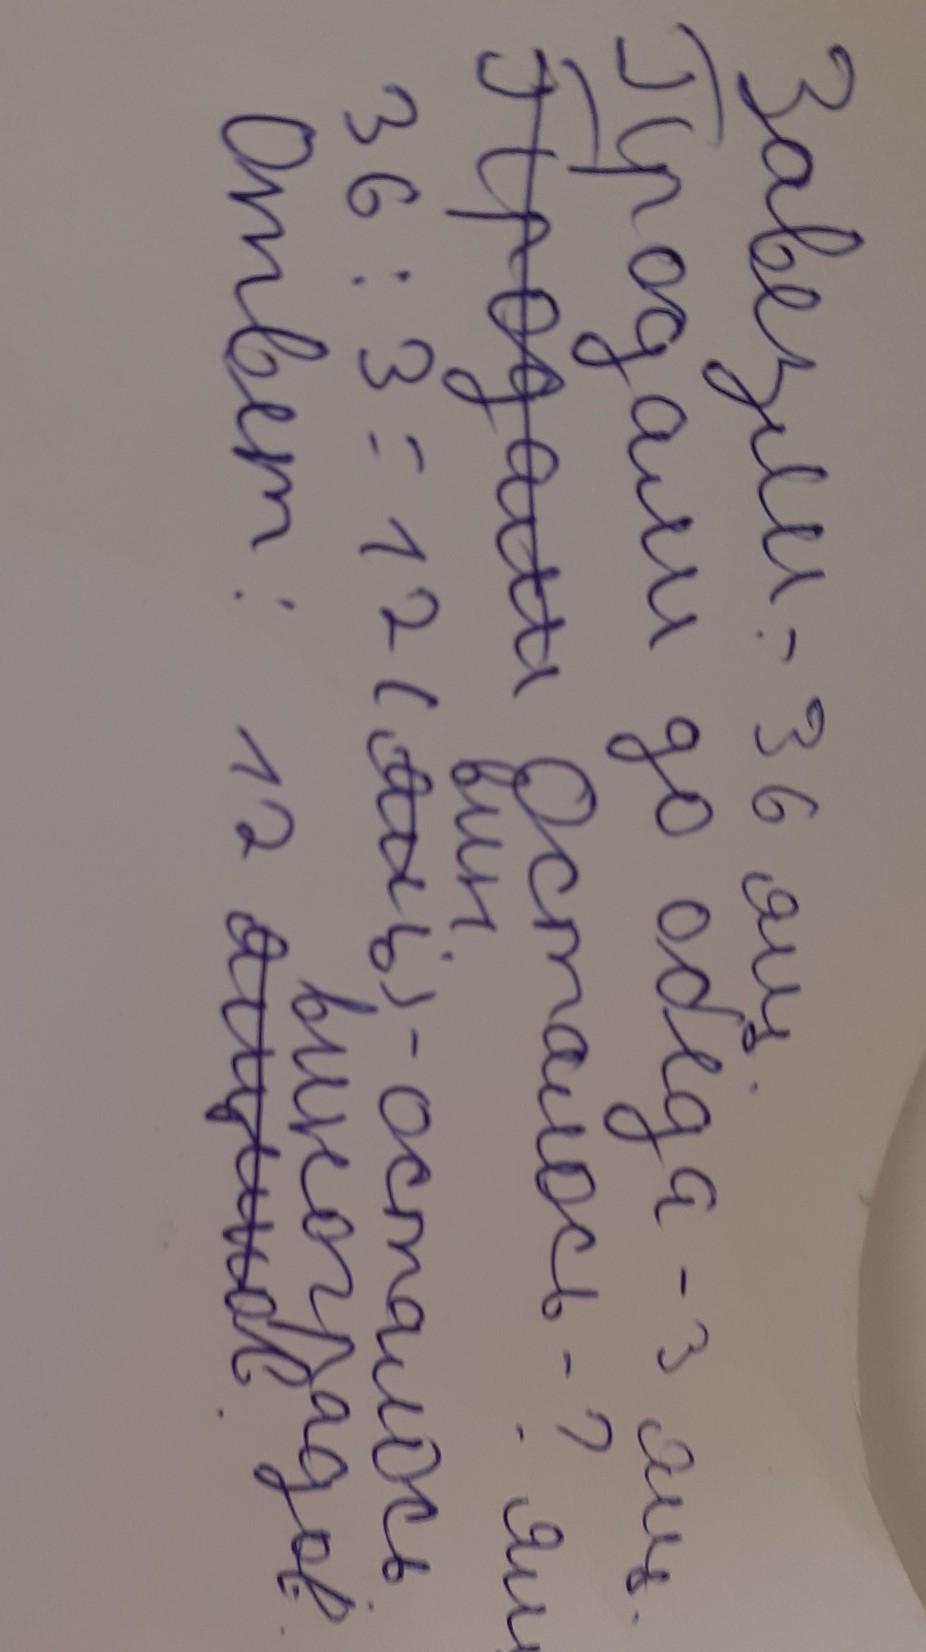 Завезли - 36 ящ.
Продали до обеда - 3 ящ.
Продали Осталось - ? ящ
вин.
36 : 3 = 12 (ящ.) - осталось
виноградов.
Ответ: 12 ящиков.